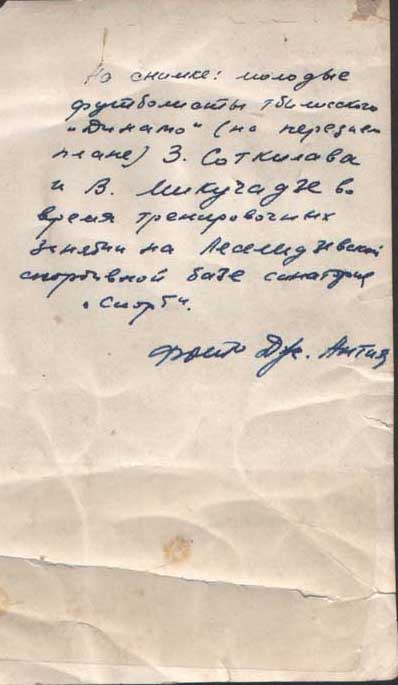 На снимке: молодые
футболисты тбилисского
"Динамо" (на переднем
плане) З. Соткилава
и В. Микучадзе во
время тренировочных
занятий на Леселидзевской
спортивной базе санатория
"Спорт".
Фото Дж. Антия